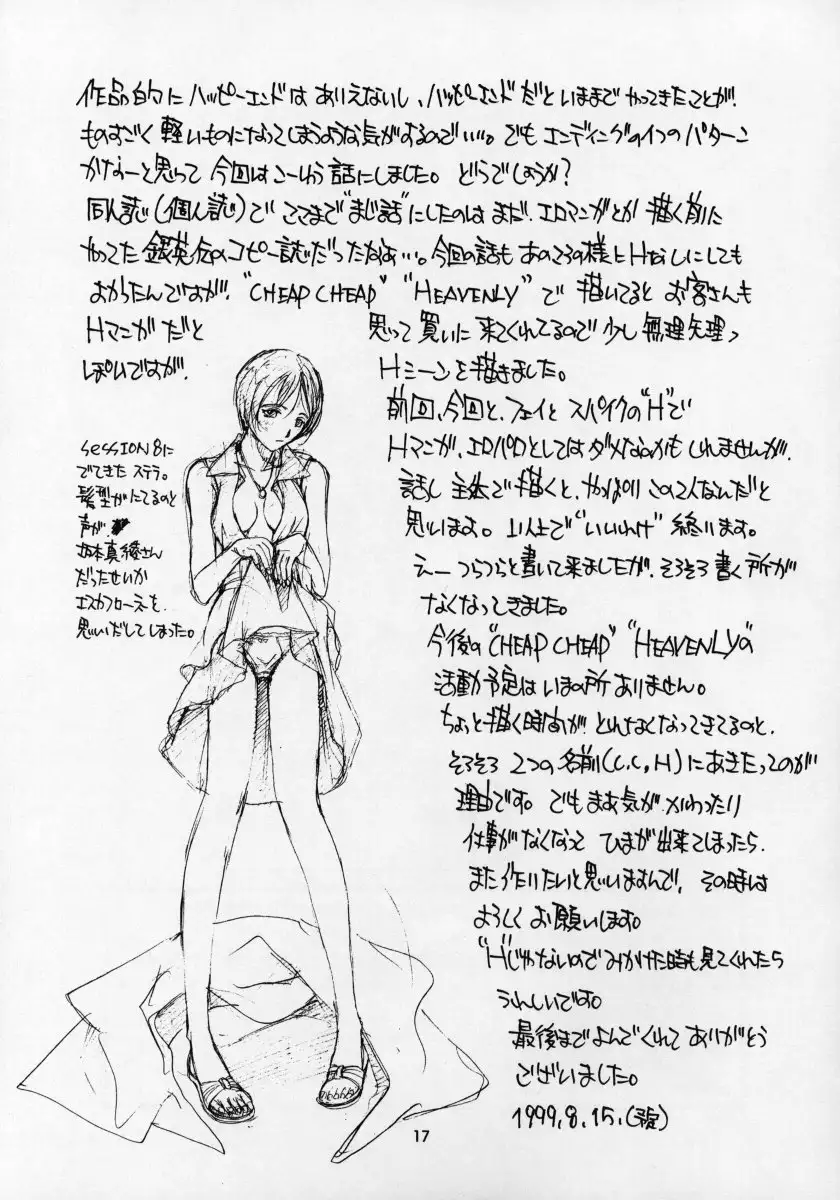 作品的にハッピーエンドはありえないし、ハッピーエンドだといままでやってきたことが、
ものすごく軽いものになってしまうような気がするので…。でもエンディングの1つのパターン
かなーと思って今回はこーいう話にしました。どうでしょうか?
同人誌(個人誌)でここまで"まじ話"にしたのはまだ、エロマンガとか描く前に
やってた銀英伝のコピー誌だったかなぁ…。今回の話もあのころの様にHなしにしても
よかったんですが、"CHEAP CHEAP" "HEAVENLY"で描いてると お客さんも
Hマンガだと思って買いに来てくれてるので少し無理矢理っ
ぽいですが、Hシーンを描きました。
前回、今回と、フェイとスパイクの"H"で
Hマンガ、エロパロとしてはダメなのかもしれませんが、
話し主体で描くと、やっぱりこの2人なんだと
思います。以上で"いいわけ"終ります。
えー つらつらと書いて来ましたが、そろそろ書く所が
なくなってきました。
今後の"CHEAP CHEAP" "HEAVENLY"の
活動予定はいまの所ありません。
ちょっと描く時間がとれなくなってきてるのと、
そろそろ2つの名前(C.C,H)にあきたってのが
理由です。でもまあ気がかわったり
仕事がなくなってひまが出来てしまったら、
また作りたいと思いますんで、その時は
よろしくお願いします。
"H"じゃないのでみかけた時も見てくれたら
うれしいです。
最後までよんでくれてありがとう
ございました。
1999.8.15.
SESSION8に
でてきたステラ。
髪型がにてるのと
声が
坂本真綾さん
だったせいか
エスカフローネを
思いだしてしまった。
17